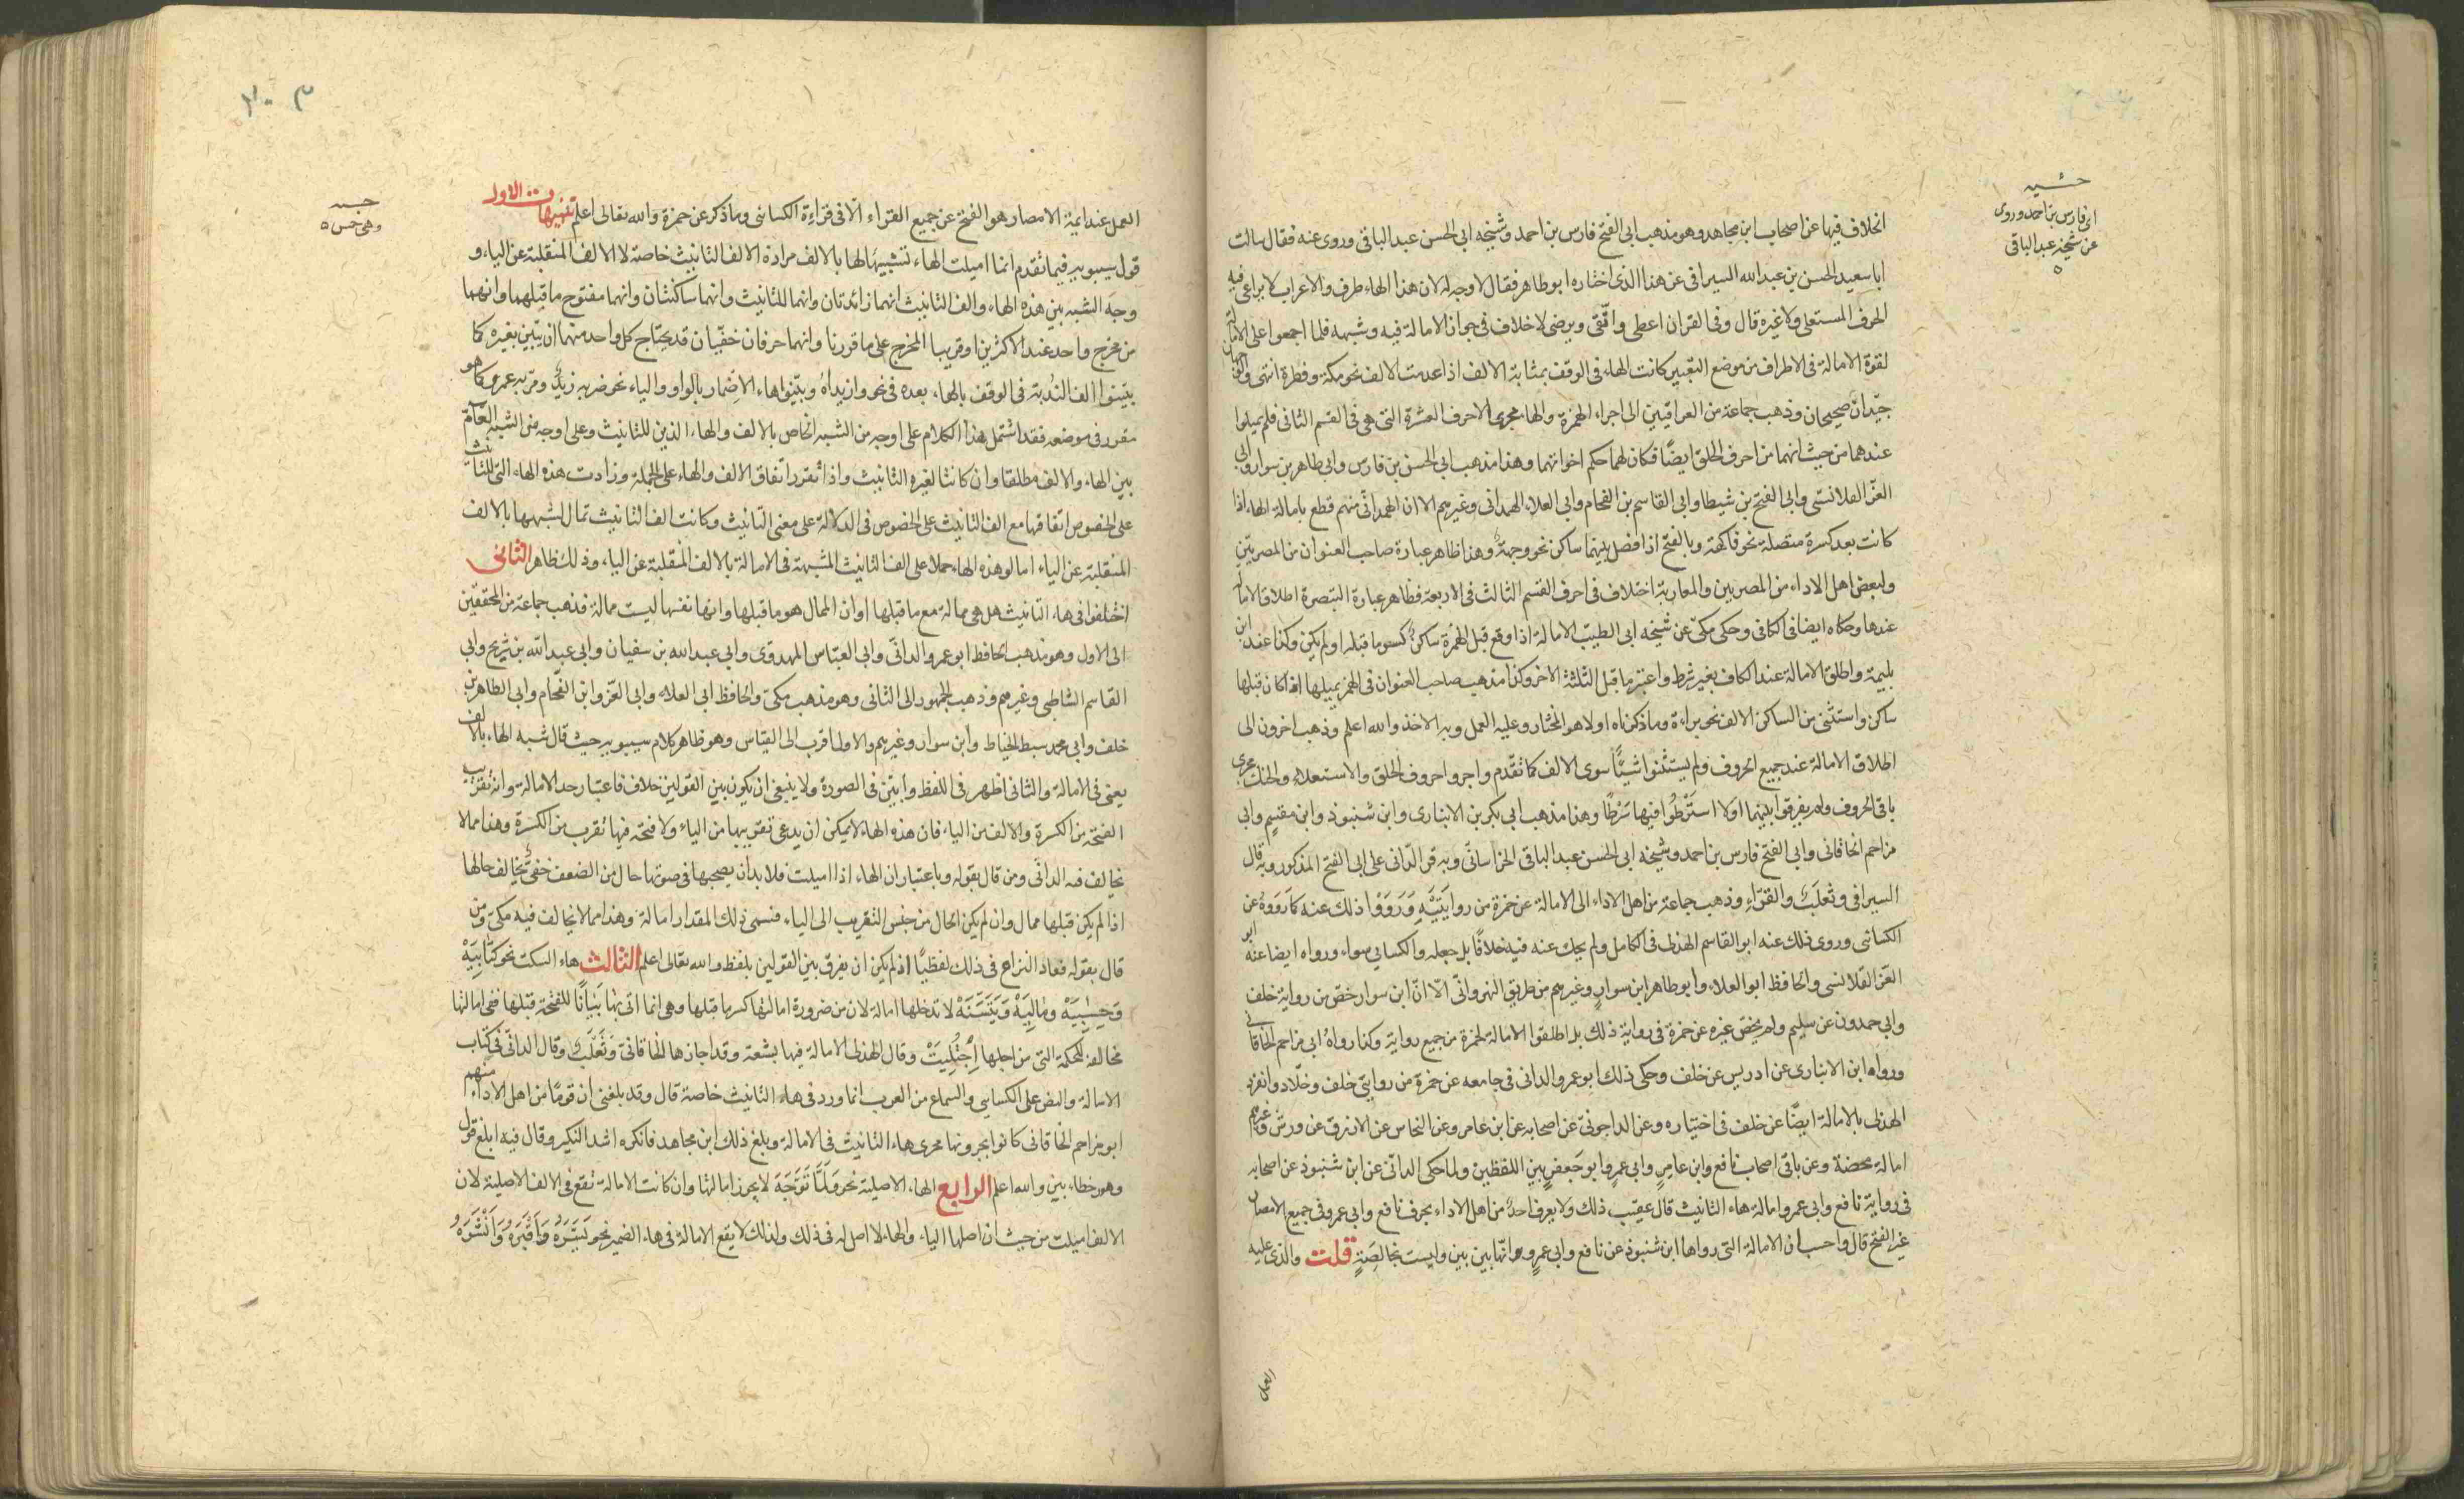 الخلاف فيها عن اصحاب ابن مجاهد وهو مذهب ابى الفتح فارس بن احمد وشيخه ابى الحسن عبد الباقى وروى عنه فقال سالت
ابا سعيد الحسن بن عبد الله السيرافى عن هذا الذى اختاره ابو طاهر فقال لا وجه له لان هذا الهاء طرف والاعراب لا يراعى فيه
الحرف المستعلى ولا غيره قال وفى القران اعطى واتقى ويرضى لا خلاف فى جواز الامالة فيه وشبهه فلما اجمعوا على الامالة
لقوة الامالة فى الاطراف من موضع التغيير كانت الهاء فى الوقف بمثابة الالف اذا عدمت الالف نحو مكة وفطرة انتهى والوجهان
جيّدان صحيحان وذهب جماعة من العراقيين الى اجراء الهمزة والهاء مجرى الاحرف العشرة التى هى فى القسم الثانى فلم يميلوا
عندهما من حيث انهما من احرف الحلق ايضًا فكان لهما حكم اخواتهما وهذا مذهب ابى الحسن بن فارس وابى طاهر بن سوار وابى
العزّ القلانسى وابى الفتح بن شيطا وابى القاسم بن الفحام وابى العلاء الهمدانى وغيرهم الا ان الهمدانى منهم قطع بامالة الهاء اذا
كانت بعد كسرة متصلة نحو فاكهة وبالفتح اذا فصل بينهما ساكن نحو وجهة وهذا ظاهر عبارة صاحب العنوان من المصريين
ولبعض اهل الاداء من المصريين والمغاربة اختلاف فى احرف القسم الثالث فى الاربعة فظاهر عبارة التبصرة اطلاق الامالة
عندها وحكاه ايضا فى الكافى وحكى مكىّ عن شيخه ابى الطيب الامالة اذا وقع قبل الهمزة ساكن كسر ما قبله او لم يكن وكذا عند ابن
بليمة واطلق الامالة عند الكاف بغير شرط واعتبر ما قبل الثلثة الاخر وكذا مذهب صاحب العنوان فى الهمز يميلها اذا كان قبلها
ساكن واستثنى من الساكن الالف نحو براءة وما ذكرناه اولا هو المختار وعليه العمل وبه الاخذ والله اعلم وذهب اخرون الى
اطلاق الامالة عند جميع الحروف ولم يستثنوا شيئًا سوى الالف كما تقدم واجروا حروف الحلق والاستعلاء والحنك مجرى
باقى الحروف ولم يفرقوا بينهما اولا اشترطوا فيها شرطًا وهذا مذهب ابى بكر بن الانبارى وابن شنبوذ وابن مقسم وابى
مزاحم الخاقانى وابى الفتح فارس بن احمد وشيخه ابى الحسن عبد الباقى الخراسانى وبه قرا الدانى على ابى الفتح المذكور وبه قال
السيرافى وثعلب والفرّاء وذهب جماعة من اهل الاداء الى الامالة عن حمزة من روايتيه وَرَوَوْا ذلك عنه كما رَوَوْهُ عن
الكسائى وروى ذلك عنه ابو القاسم الهذلى فى الكامل ولم يحك عنه فيه خلافًا بل جعله والكسايى سواء ورواه ايضا عنه ابو
العزّ القلانسى والحافظ ابو العلاء وابو طاهر ابن سوار وغيرهم من طريق النهروانى الّا انّ ابن سوار خصّ من رواية خلف
وابى حمدون عن سليم ولم يخص غيره عن حمزة فى رواية ذلك بل اطلقوا الامالة لحمزة من جميع رواية وكذا رواه ابى مزاحم الخاقانى
ورواه ابن الانبارى عن ادريس عن خلف وحكى ذلك ابو عمرو الدانى فى جامعه عن حمزة من روايتى خلف وخلّاد وانفرد
الهذلى بالامالة ايضًا عن خلف فى اختياره وعن الداجونى عن اصحابه عن ابن عامر وعن النحاس عن الازرق عن ورش وغيرهم
امالة محضة وعن باقى اصحاب نافع وابن عامر وابى عمرٍو وابو جَعفرٍ بين اللفظين ولما حكى الدانى عن ابن شنبوذ عن اصحابه
فى رواية نافع وابى عمرو امالة هاء التانيث قال عقيب ذلك ولا يعرف احدٌ من اهل الاداء بحرف نافع وابى عمرو فى جميع الامصار
غير الفتح قال واحسب ان الامالة التى رواها ابن شنبوذ عن نافع وابى عمرٍو انّها بين بين وليست بخالصَةٍ قلت والذى عليه
العمل
حشيه
ابى فارس بن احمد وروى
عن شيخه عبد الباقى
٣٠٣
العمل عند ايمة الامصار هو الفتح عن جميع القراء الّا فى قراءة الكسائى وما ذكر عن حمزة والله تعالى اعلم تنبيهات الاول
قول سيبويه فيما تقدم انما اميلت الهاء تشبيهًا لها بالالف مراده الالف التانيث خاصة لا الالف المنقلبة عن الياء و
وجه الشبه بين هذه الهاء والف التانيث انهما زائدتان وانهما للتانيث وانهما ساكنتان وانهما مفتوح ما قبلهما وانهما
من مخرج واحد عند الاكثرين او قريبا المخرج على ما قررنا وانهما حرفان خفيّان قد يحتاج كل واحد منهما ان يتبين بغيره كما
بيّنوا الف النُدبة فى الوقف بالهاء بعده فى نحو وازيداه وبيّنوا هاء الاضمار بالواو والياء نحو ضربه زيدٌ ومرّ به عمرو كما هو
مقرر فى موضعه فقد اشتمل هذا الكلام على اوجه من الشبه الخاص بالالف والهاء الذين للتانيث وعلى اوجه من الشبه العامّ
بين الهاء والالف مطلقا وان كانتا لغيره التانيث واذا تقرر اتفاق الالف والهاء على الجملة وزادت هذه الهاء التى للتانيث
على الخصوص اتفاقها مع الف التانيث على الخصوص فى الدلالة على معنى التانيث وكانت الف التانيث تمال لشبهها بالالف
المنقلبة عن الياء امالو هذه الهاء حملا على الف التانيث المشبهة فى الامالة بالالف المنقلبة عن الياء وذلك ظاهر الثانى
اختلفوا فى هاء التانيث هل هى ممالة مع ما قبلها او ان الممال هو ما قبلها وانها نفسها ليست ممالة فذهب جماعة من المحققين
الى الاول وهو مذهب الحافظ ابو عمرو الدانى وابى العبّاس المهدوى وابى عبد الله بن سفيان وابى عبد الله بن شريح وابى
القاسم الشاطبى وغيرهم وذهب الجمهور الى الثانى وهو مذهب مكىّ والحافظ ابى العلاء وابى العزّ وابن الفحّام وابى الطاهر بن
خلف وابى محمد سبط الخياط وابن سوار وغيرهم والاول اقرب الى القياس وهو ظاهر كلام سيبويه حيث قال شبه الهاء بالالف
يعنى فى الامالة والثانى اظهر فى اللفظ وابيّن فى الصورة ولا ينبغى ان يكون بين القولين خلاف فاعتبار حد الامالة وانه تقريب
الفتحة من الكسرة والالف من الياء فان هذه الهاء لا يمكن ان يدعى تقريبها من الياء ولا فتحة فيها تقرب من الكسرة وهذا مما لا
يخالف فيه الدانى ومن قال بقوله وباعتبار ان الهاء اذا اميلت فلا بد ان يصحبها فى صوتها حال من الضعف خفىّ يخالف حالها
اذا لم يكن قبلها ممال وان لم يكن الحال من جنس التقريب الى الياء فسمى ذلك المقدار امالة وهذا مما لا يخالف فيه مكىّ ومن
قال بقوله فعاد النزاع فى ذلك لفظيًا اذ لم يكن ان يفرق بين القولين بلفظ والله تعالى اعلم الثالث هاء السكت نحو كتابِيَهْ
وَحِسٰبِيَهْ ومالِيَهْ وَيَتَسَنَّهْ لا تدخلها امالة لان من ضرورة امالتها كسر ما قبلها وهى انما اتى بها بَيانًا للفتحة قبلها ففى امالتها
مخالفة للحكمة التى من اجلها اُجتُلِبَتْ وقال الهذلى الامالة فيها بشعة وقد اجازها الخاقانىّ وثَعلَبٌ وقال الدانىّ فى كتاب
الامالة والنص على الكسايى والسماع من العرب انما ورد فى هاء التانيث خاصة قال وقد بلغنى ان قومًا من اهل الاداء منهم
ابو مزاحم الخاقانى كانوا يجرونها مجرى هاء التانيث فى الامالة وبلغ ذلك ابن مجاهد فانكره اشد النكير وقال فيه ابلغ قول
وهو خطاء بين والله اعلم الرابع الهاء الاصلية نحو فَلَمَّا تَوَجَّهَ لا يجوز امالتها وان كانت الامالة تقع فى الالف الاصلية لان
الالف اميلت من حيث ان اصلها الياء والهاء لا اصل له فى ذلك ولذلك لا يقع الامالة فى هاء الضمير نحو يَسَّرَهُ وَاَقْبَرَهُ وَاَنْشَرَهُ
وهى خمس